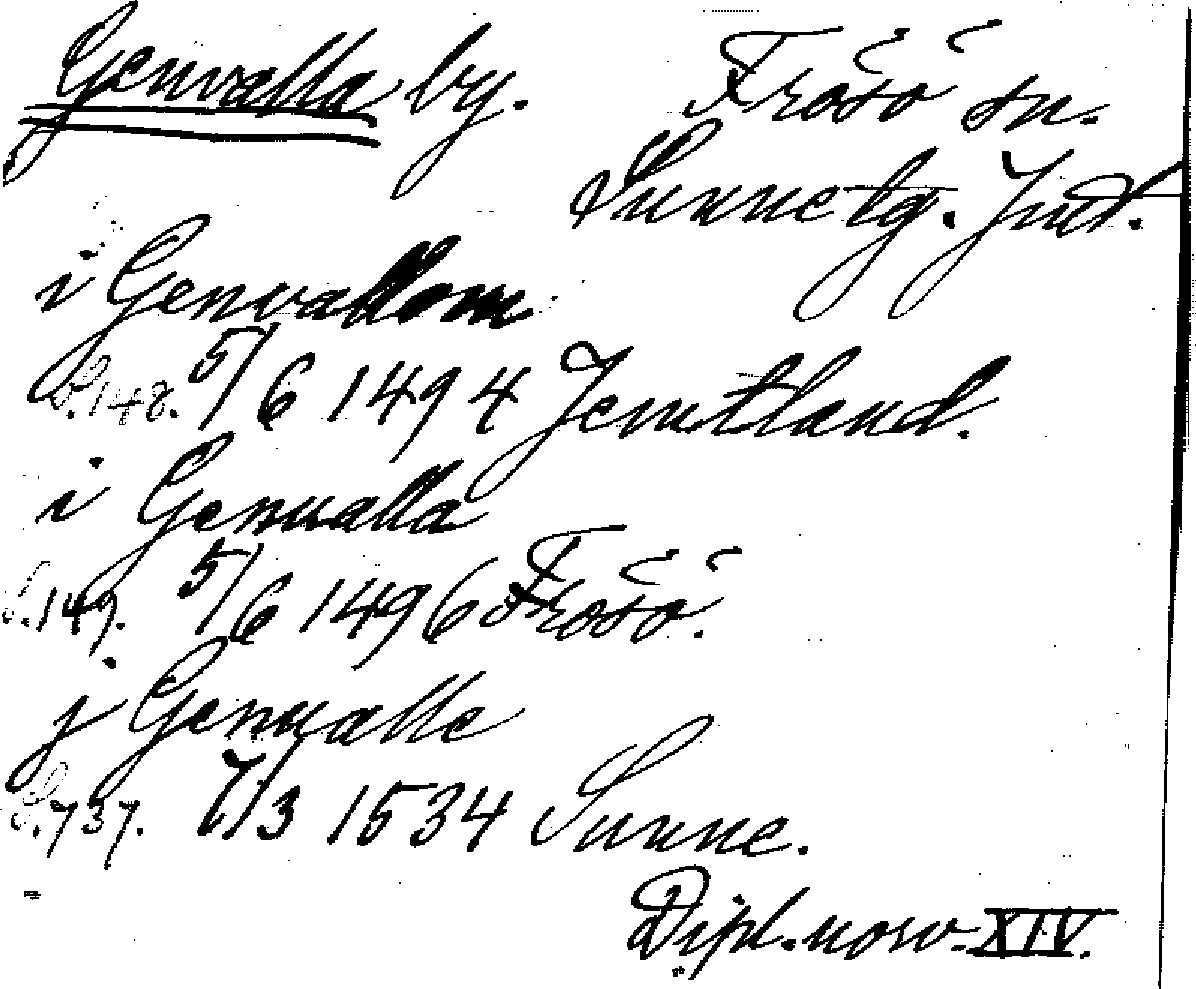 Genvalla by. Frösö sn.
Sunne tg. Jmt.
i Genvallom
S.148. 5/6 1494 Jemtland.
i Genualla
S.149. 5/6 1496 Frösö.
j Genualle
S.737. 7/3 1534 Sunne.
Dipl. norv. XIV.